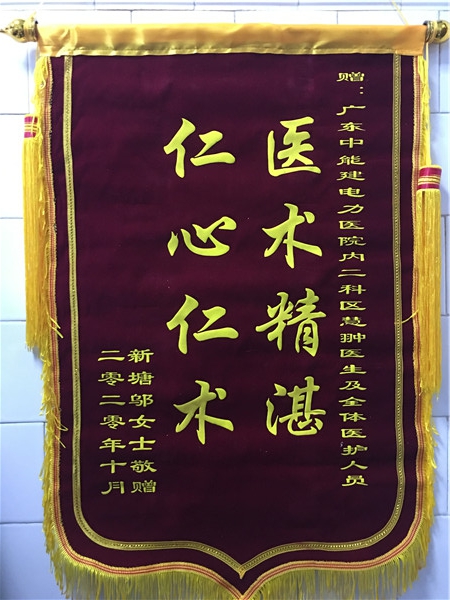 赠：广东中能建电力医院内二科区慧翀医生及全体医护人员
医术精湛
仁心仁术
新塘邬女士敬赠
二零二零年十月